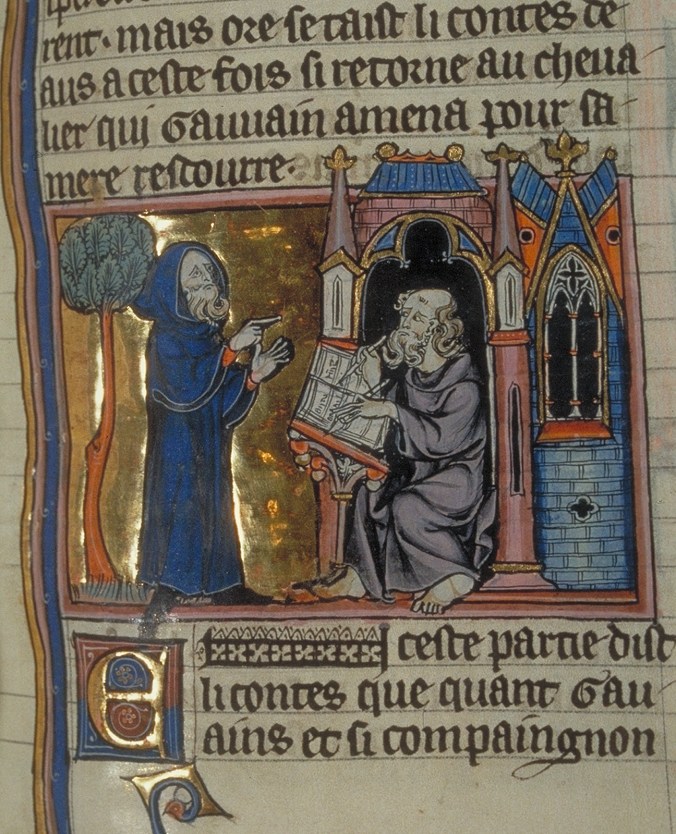 rent. mais ore se taist li contes de
aus a ceste fois si retorne au cheua
lier qui Gauuain amena pour sa
mere rescourre.
E
ceste partie dist
li contes que quant Gau
ains et si compaingnon